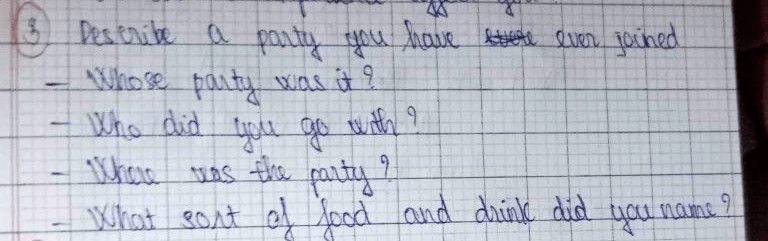 3 Describe a party you have ever joined
- Whose party was it?
- Who did you go with?
- Where was the party?
- What sort of food and drink did you name?